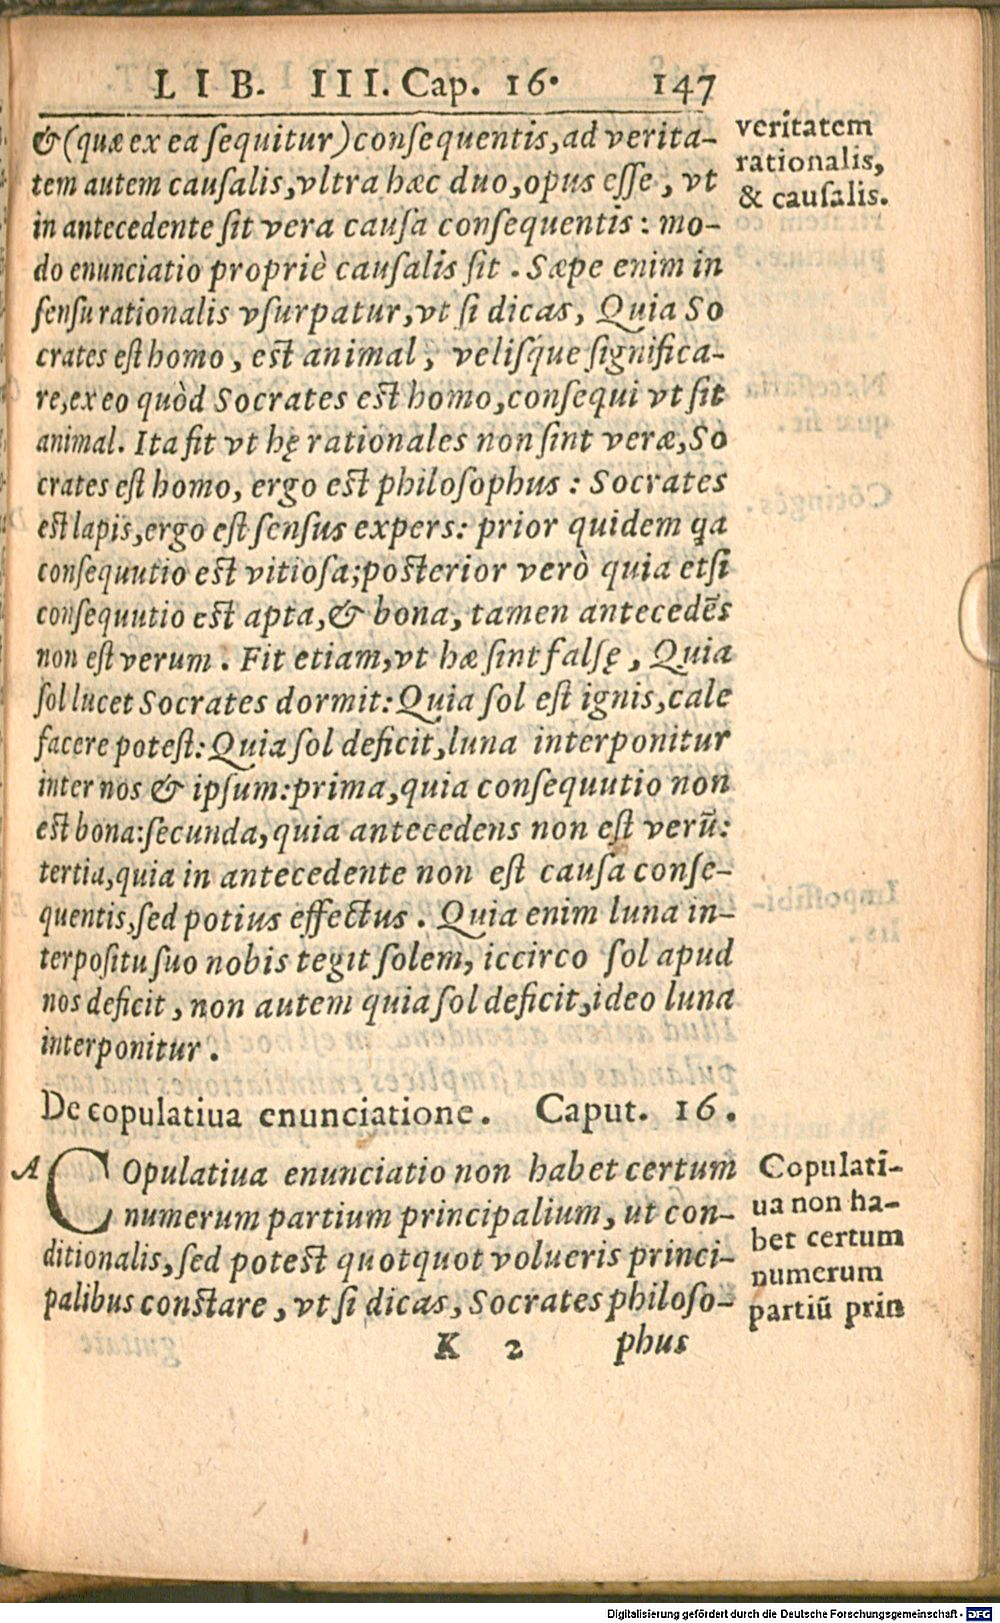 LIB. III. Cap. 16. 147
& (quæ ex ea sequitur) consequentis, ad verita-
tem autem causalis, vltra hæc duo, opus esse, vt
in antecedente sit vera causa consequentis: mo-
do enunciatio propriè causalis sit. Sæpe enim in
sensu rationalis vsurpatur, vt si dicas, Quia So
crates est homo, est animal, velisque significa-
re, ex eo quòd Socrates est homo, consequi vt sit
animal. Ita fit vt hę rationales non sint veræ, So
crates est homo, ergo est philosophus: Socrates
est lapis, ergo est sensus expers: prior quidem qa
consequutio est vitiosa; posterior verò quia etsi
consequutio est apta, & bona, tamen antecedēs
non est verum. Fit etiam, vt hæ sint falsę, Quia
sol lucet Socrates dormit: Quia sol est ignis, cale
facere potest: Quia sol deficit, luna interponitur
inter nos & ipsum: prima, quia consequutio non
est bona: secunda, quia antecedens non est verū:
tertia, quia in antecedente non est causa conse-
quentis, sed potius effectus. Quia enim luna in-
terpositu suo nobis tegit solem, iccirco sol apud
nos deficit, non autem quia sol deficit, ideo luna
interponitur.
veritatem
rationalis,
& causalis.
De copulatiua enunciatione. Caput. 16.
A COpulatiua enunciatio non habet certum
numerum partium principalium, ut con-
ditionalis, sed potest quotquot volueris princi-
palibus constare, vt si dicas, Socrates philoso-
Copulati-
ua non ha-
bet certum
numerum
partiū prin
K 2 phus
Digitalisierung gefördert durch die Deutsche Forschungsgemeinschaft - DFG